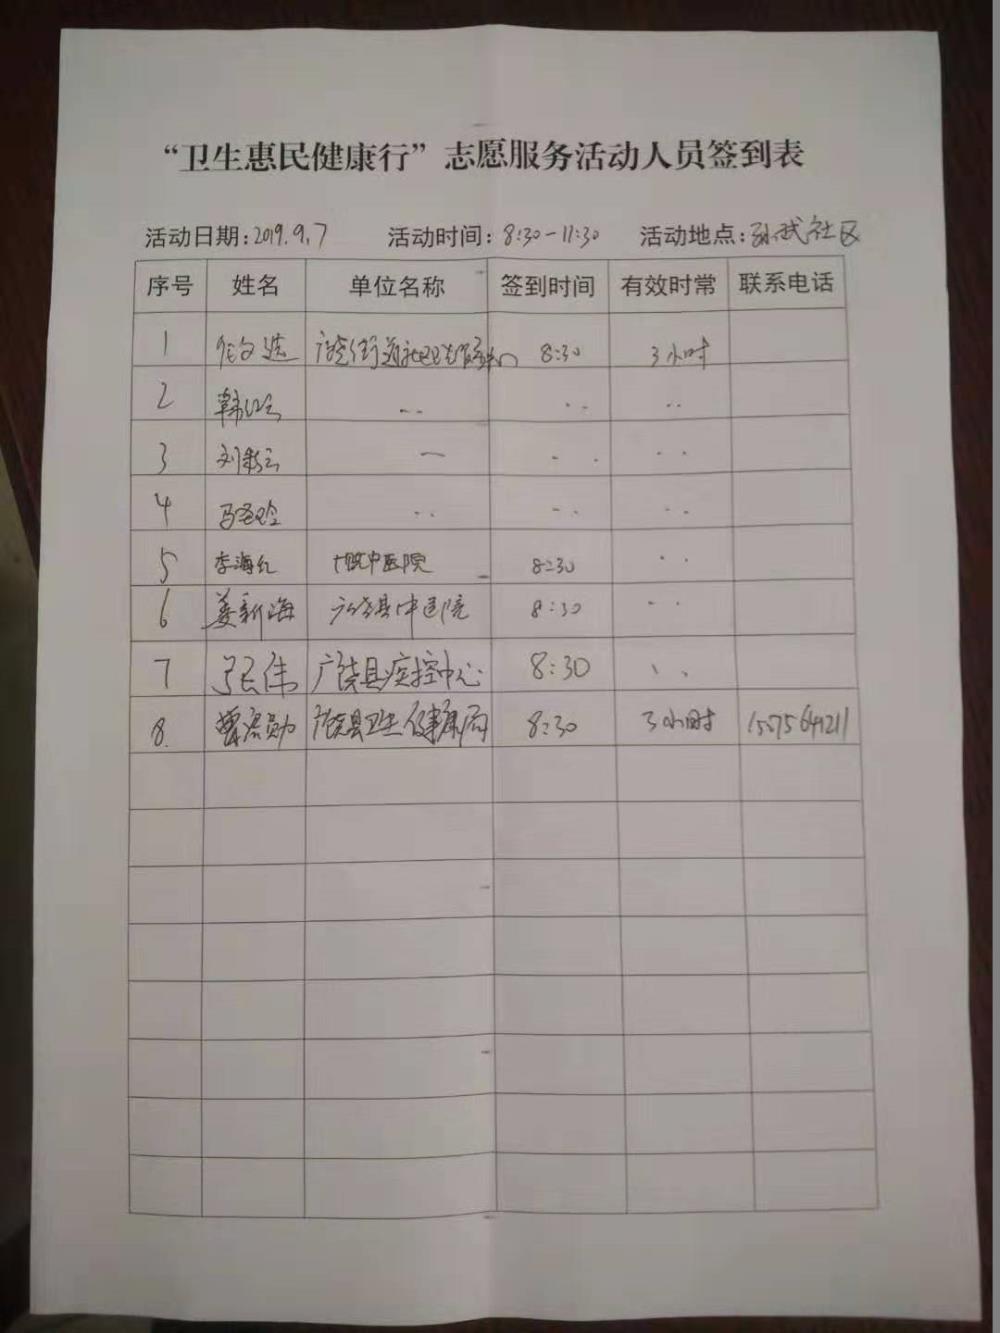 “卫生惠民健康行”志愿服务活动人员签到表
活动日期:2019.9.7 活动时间:8:30-11:30 活动地点:孙武社区
序号 姓名 单位名称 签到时间 有效时常 联系电话
1 8:30 3小时
2 韩红云
3 刘彩云
4
5 李海红 中医院 8:30
6 姜新海 广饶县中医院 8:30
7 张伟 广饶县疾控中心 8:30
8. 广饶县卫生健康局 8:30 3小时